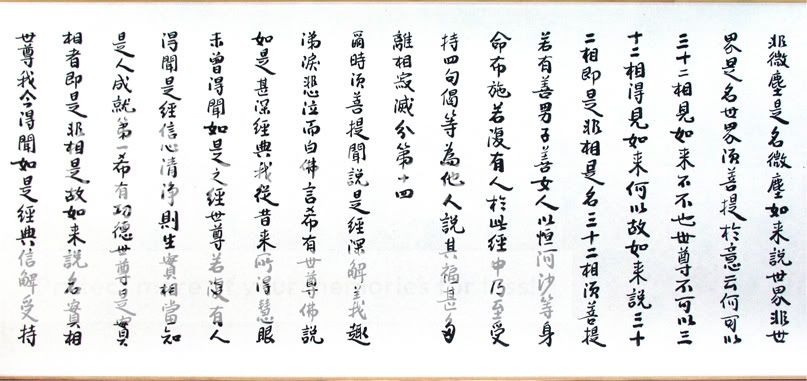 非微塵是名微塵如来說世界非世
界是名世界須菩提於意云何可以
三十二相見如来不不也世尊不可以三
十二相得見如来何以故如来說三十
二相即是非相是名三十二相須菩提
若有善男子善女人以恒河沙等身
命布施若復有人於此經中乃至受
持四句偈等為他人說其福甚多
離相寂滅分第十四
爾時須菩提聞說是經深解義趣
涕淚悲泣而白佛言希有世尊佛說
如是甚深經典我從昔来所得慧眼
未曾得聞如是之經世尊若復有人
得聞是經信心清淨則生實相當知
是人成就第一希有功德世尊是實
相者即是非相是故如来說名實相
世尊我今得聞如是經典信解受持
more of your memories for less!